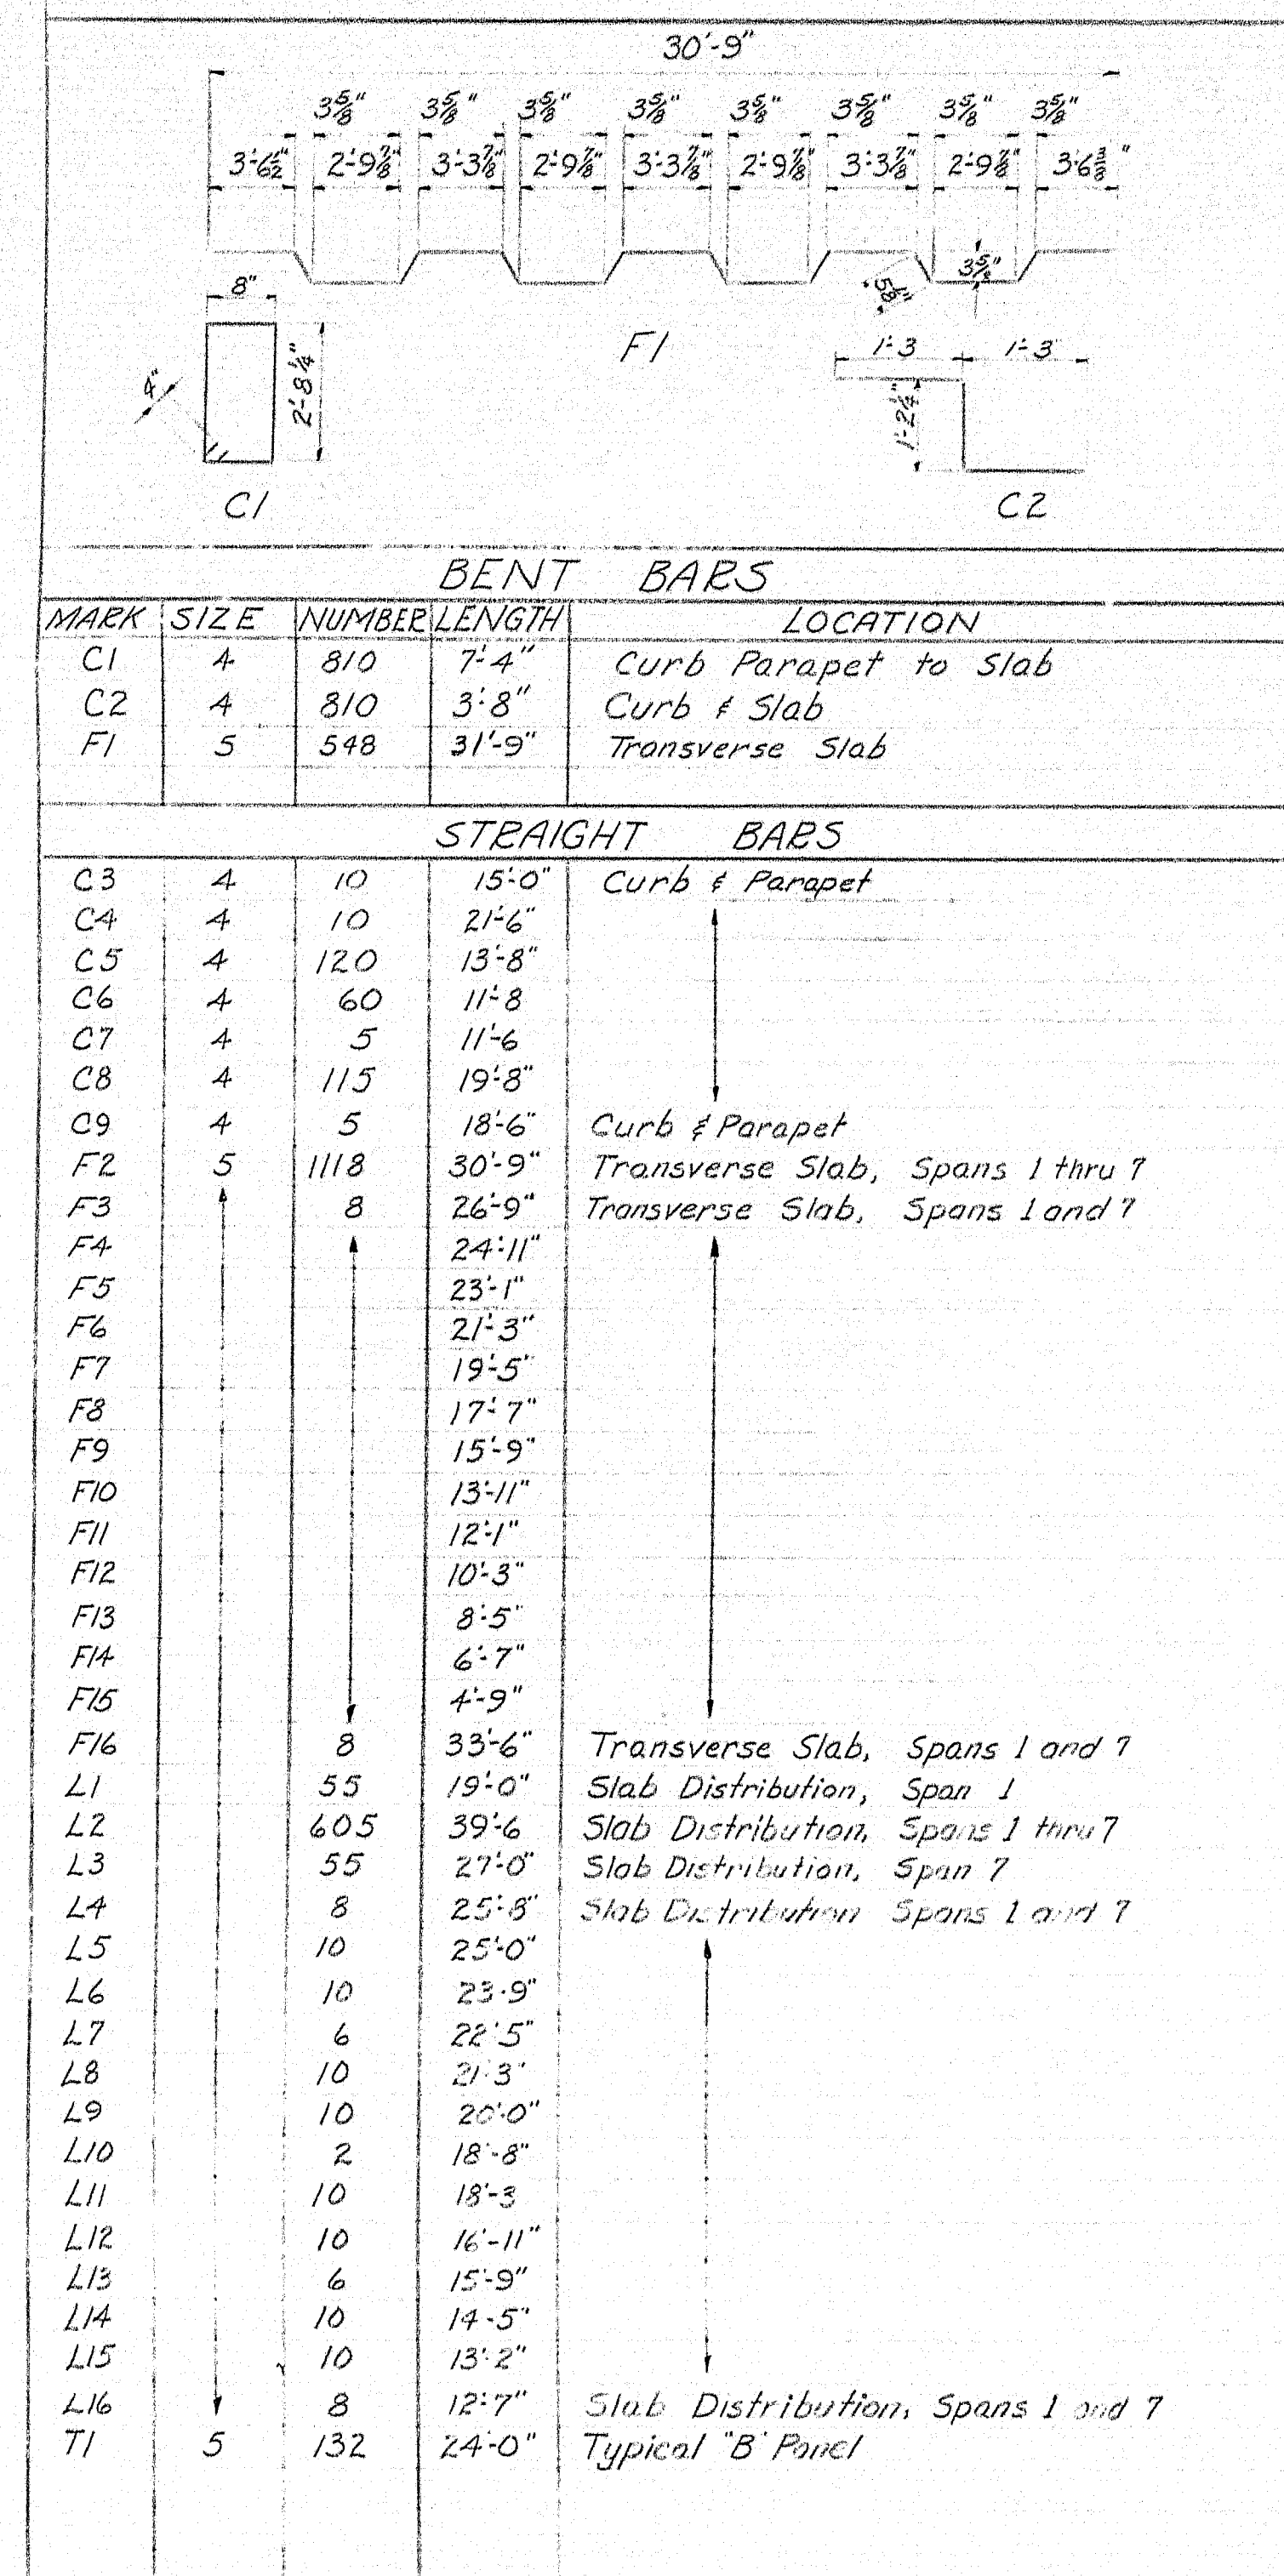 30'-9"
3⅝" 3⅝" 3⅝" 3⅝" 3⅝" 3⅝" 3⅝" 3⅝"
3'-6½" 2'-9⅞" 3'-3⅞" 2'-9⅞" 3'-3⅞" 2'-9⅞" 3'-3⅞" 2'-9⅞" 3'6⅜"
8" 3⅝"
F1
1'-3 1'-3
4" 2'-8¼" 1'-2¼"
C1 C2
BENT BARS
MARK SIZE NUMBER LENGTH LOCATION
C1 4 810 7'-4" Curb Parapet to Slab
C2 4 810 3'-8" Curb & Slab
F1 5 548 31'-9" Transverse Slab
STRAIGHT BARS
C3 4 10 15'-0" Curb & Parapet
C4 4 10 21'-6"
C5 4 120 13'-8"
C6 4 60 11'-8
C7 4 5 11'-6
C8 4 115 19'-8"
C9 4 5 18'-6" Curb & Parapet
F2 5 1118 30'-9" Transverse Slab, Spans 1 thru 7
F3 8 26'-9" Transverse Slab, Spans 1 and 7
F4 24'-11"
F5 23'-1"
F6 21'-3"
F7 19'-5"
F8 17'-7"
F9 15'-9"
F10 13'-11"
F11 12'-1"
F12 10'-3"
F13 8'-5"
F14 6'-7"
F15 4'-9"
F16 8 33'-6" Transverse Slab, Spans 1 and 7
L1 55 19'-0" Slab Distribution, Span 1
L2 605 39'-6 Slab Distribution, Spans 1 thru 7
L3 55 27'-0" Slab Distribution, Span 7
L4 8 25'-8" Slab Distribution Spans 1 and 7
L5 10 25'-0"
L6 10 23-9"
L7 6 22'5"
L8 10 21-3"
L9 10 20'-0"
L10 2 18'-8"
L11 10 18'-3
L12 10 16'-11"
L13 6 15'-9"
L14 10 14-5"
L15 10 13'-2"
L16 8 12'-7" Slab Distribution, Spans 1 and 7
T1 5 132 24'-0" Typical "B" Panel